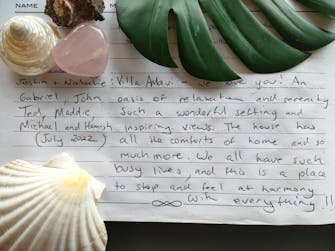 NAME
NAME
Justin + Natalie: Villa Amavi - we love you! An
Gabriel, John, oasis of relaxation and serenity
Ted, Maddie Such a wonderful setting and
Michael and Hamish inspiring views. The house has
(July 2022) all the comforts of home and so
much more. We all have such
busy lives, and this is a place
to stop and feel at harmony
∞ with everything!!